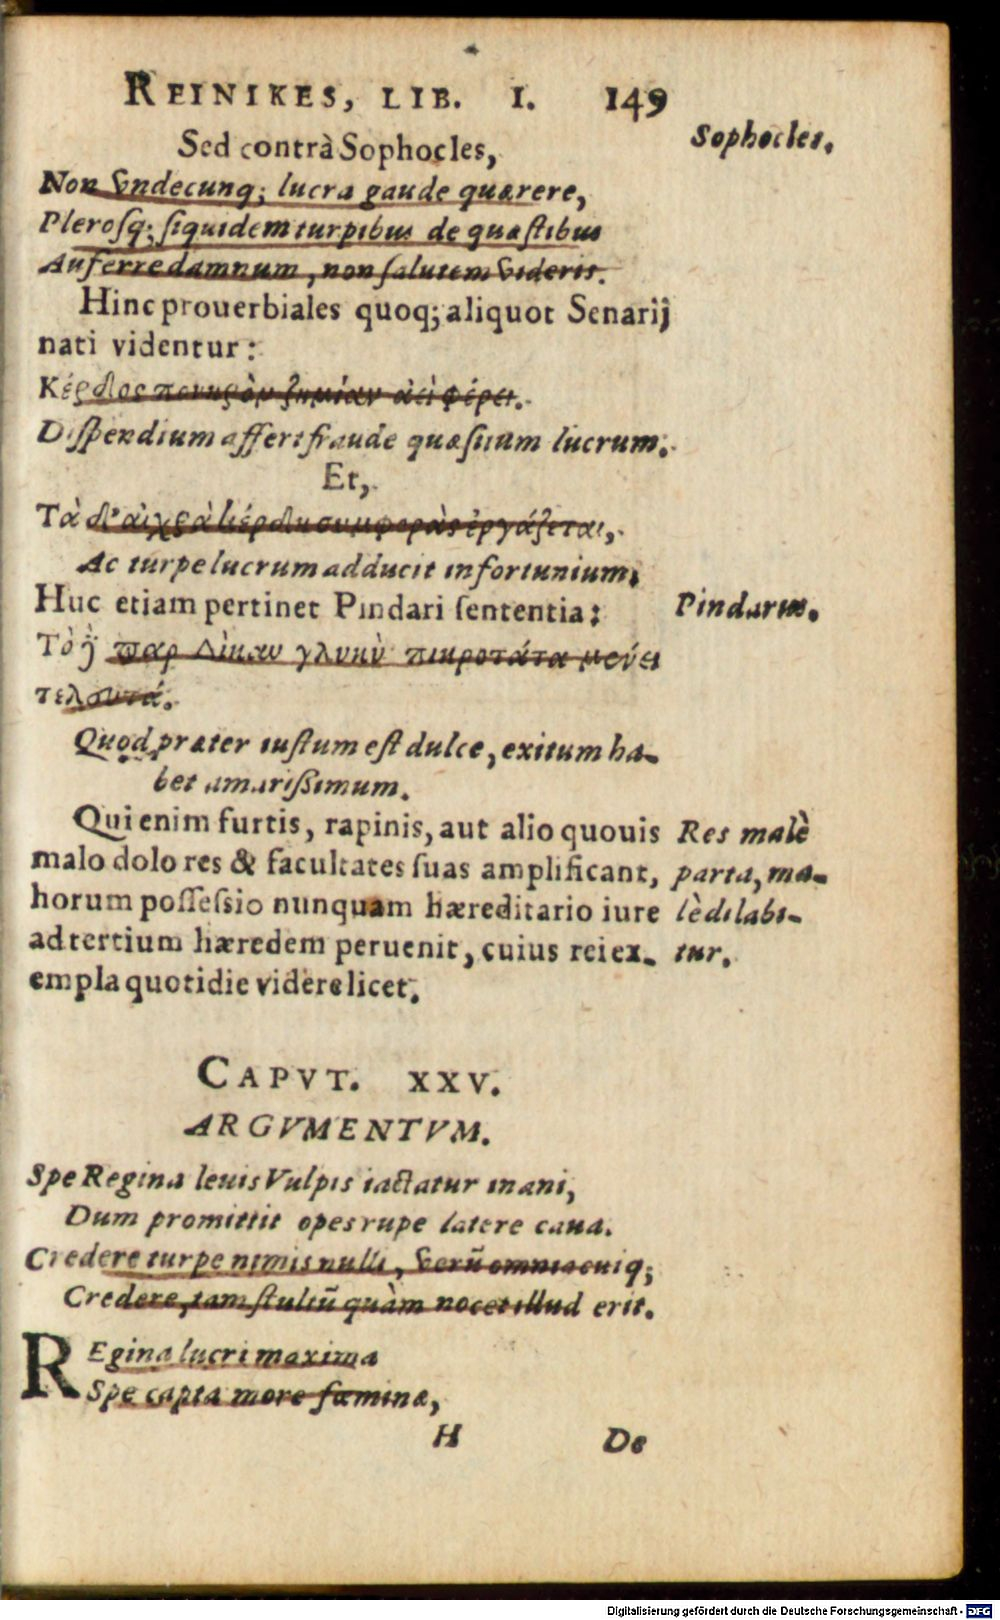 REINIKES, LIB. I. 149
Sed contrà Sophocles,
Sophocles.
Non vndecunq; lucra gaude quærere,
Plerosq; siquidem turpibus de quæstibus
Auferre damnum, non salutem videris.
Hinc prouerbiales quoq; aliquot Senarij
nati videntur:
Κέρδος πονηρὸν ζημίαν ἀεὶ φέρει.
Dispendium affert fraude quæsitum lucrum.
Et,
Τὰ δ' αἰχρὰ κέρδη συμφορὰς ἐργάζεται,
Ac turpe lucrum adducit infortunium,
Huc etiam pertinet Pindari sententia:
Pindarus.
Τὸ ϳ̈ παρ Δίκαν γλυκὺ πικροτάτα μένει
τελουτά.
Quod præter iustum est dulce, exitum ha-
bet amarissimum.
Qui enim furtis, rapinis, aut alio quouis
malo dolo res & facultates suas amplificant,
horum possessio nunquam hæreditario iure
ad tertium hæredem peruenit, cuius rei ex-
empla quotidie videre licet.
Res malè
parta, ma-
lè dilabi-
tur.
CAPVT. XXV.
ARGVMENTVM.
Spe Regina leuis Vulpis iactatur inani,
Dum promittit opes rupe latere caua.
Credere turpe nimis nulli, verū omnia cuiq;
Credere, tam stultū quàm nocet illud erit.
REgina lucri maxima
Spe capta more fœminæ,
H De
Digitalisierung gefördert durch die Deutsche Forschungsgemeinschaft - DFG